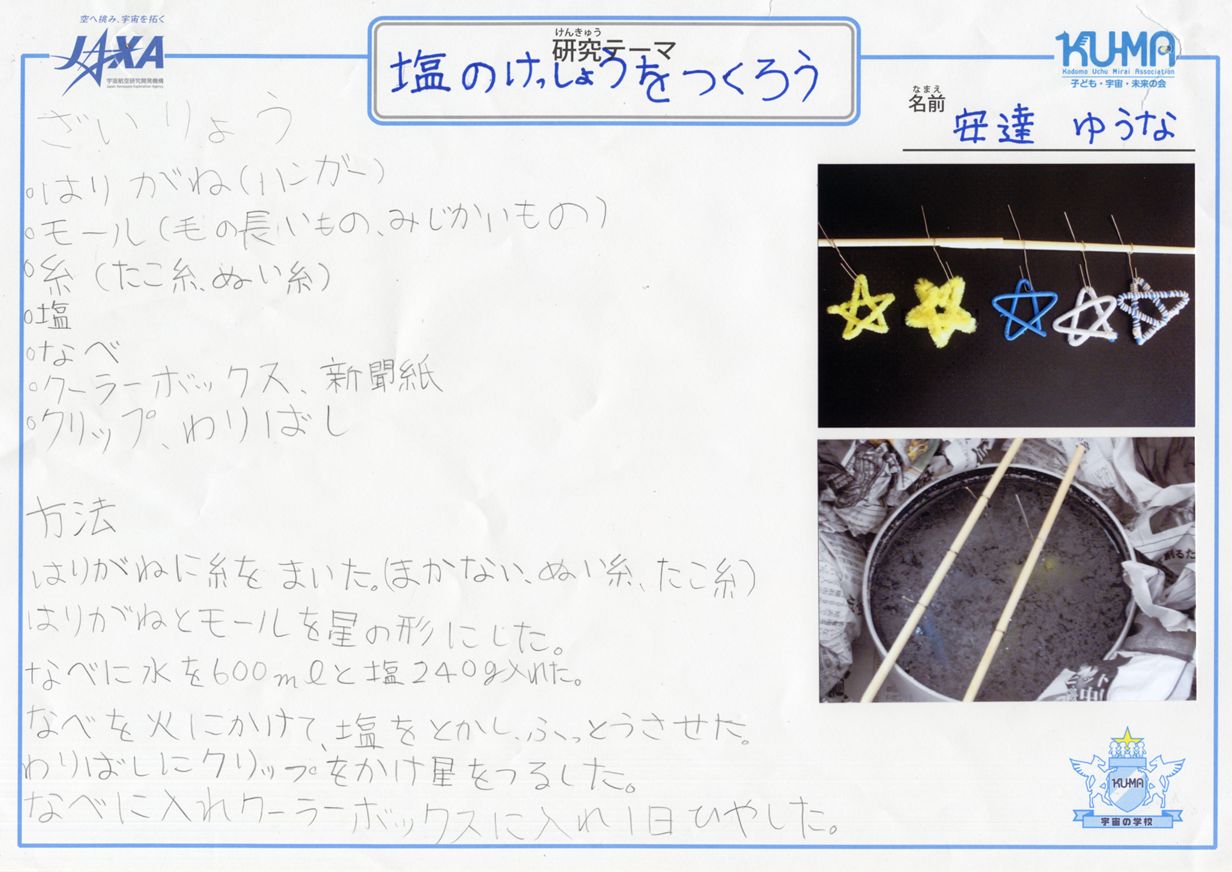 空へ挑み、宇宙を拓く
JAXA
宇宙航空研究開発機構
Japan Aerospace Exploration Agency
けんきゅう
研究テーマ
塩のけっしょうをつくろう
KU-MA
Kodomo Uchu Mirai Association
子ども・宇宙・未来の会
なまえ
名前
安達 ゆうな
ざいりょう
○はりがね(ハンガー)
○モール(毛の長いもの、みじかいもの)
○糸(たこ糸、ぬい糸)
○塩
○なべ
○クーラーボックス、新聞紙
○クリップ、わりばし
方法
はりがねに糸をまいた。(まかない、ぬい糸、たこ糸)
はりがねとモールを星の形にした。
なべに水を600mlと塩240g入れた。
なべを火にかけて、塩をとかし、ふっとうさせた。
わりばしにクリップをかけ星をつるした。
なべに入れクーラーボックスに入れ1日ひやした。
KU-MA
宇宙の学校